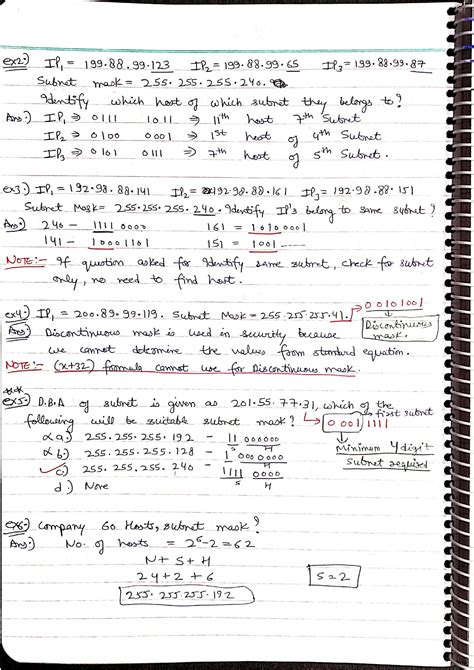 ex2:) IP₁ = 199.88.99.123 IP₂ = 199.88.99.65 IP₃ = 199.88.99.87
Subnet mask = 255.255.255.240.
Identify which host of which subnet they belongs to?
Ans:) IP₁ ⇒ 0111 1011 ⇒ 11th host 7th Subnet
IP₂ ⇒ 0100 0001 ⇒ 1st host of 4th Subnet
IP₃ ⇒ 0101 0111 ⇒ 7th host of 5th Subnet.
ex3:) IP₁ = 192.98.88.141 IP₂ = 192.98.88.161 IP₃ = 192.98.88.151
Subnet Mask = 255.255.255.240. Identify IP's belong to same subnet?
Ans:) 240 - 1111 0000 161 = 1010 0001
141 - 1000 1101 151 = 1001 ----
NOTE:- If question asked for Identify same subnet, check for subnet
only, no need to find host.
ex4:) IP₁ = 200.89.99.119. Subnet Mask = 255.255.255.41. → 00101001
Discontinuous mask.
Ans:) Discontinuous mask is used in security because
we cannot determine the values from standard equation.
NOTE:- (x+32) formula cannot use for Discontinuous mask.
ex5:) D.B.A of subnet is given as 201.55.77.31, which of the
following will be suitable subnet mask? → 0001 1111 → first subnet
a.) 255.255.255.192 - 11 000000
S H
b.) 255.255.255.128 - 1 000 0000
S H
c.) 255.255.255.240 - 1111 0000
S H
d.) None
Minimum 4 digit
subnet required
ex6:) Company 60 Hosts, subnet mask?
Ans:) No. of hosts = 2⁶-2 = 62
N + S + H
24 + 2 + 6
S = 2
255.255.255.192